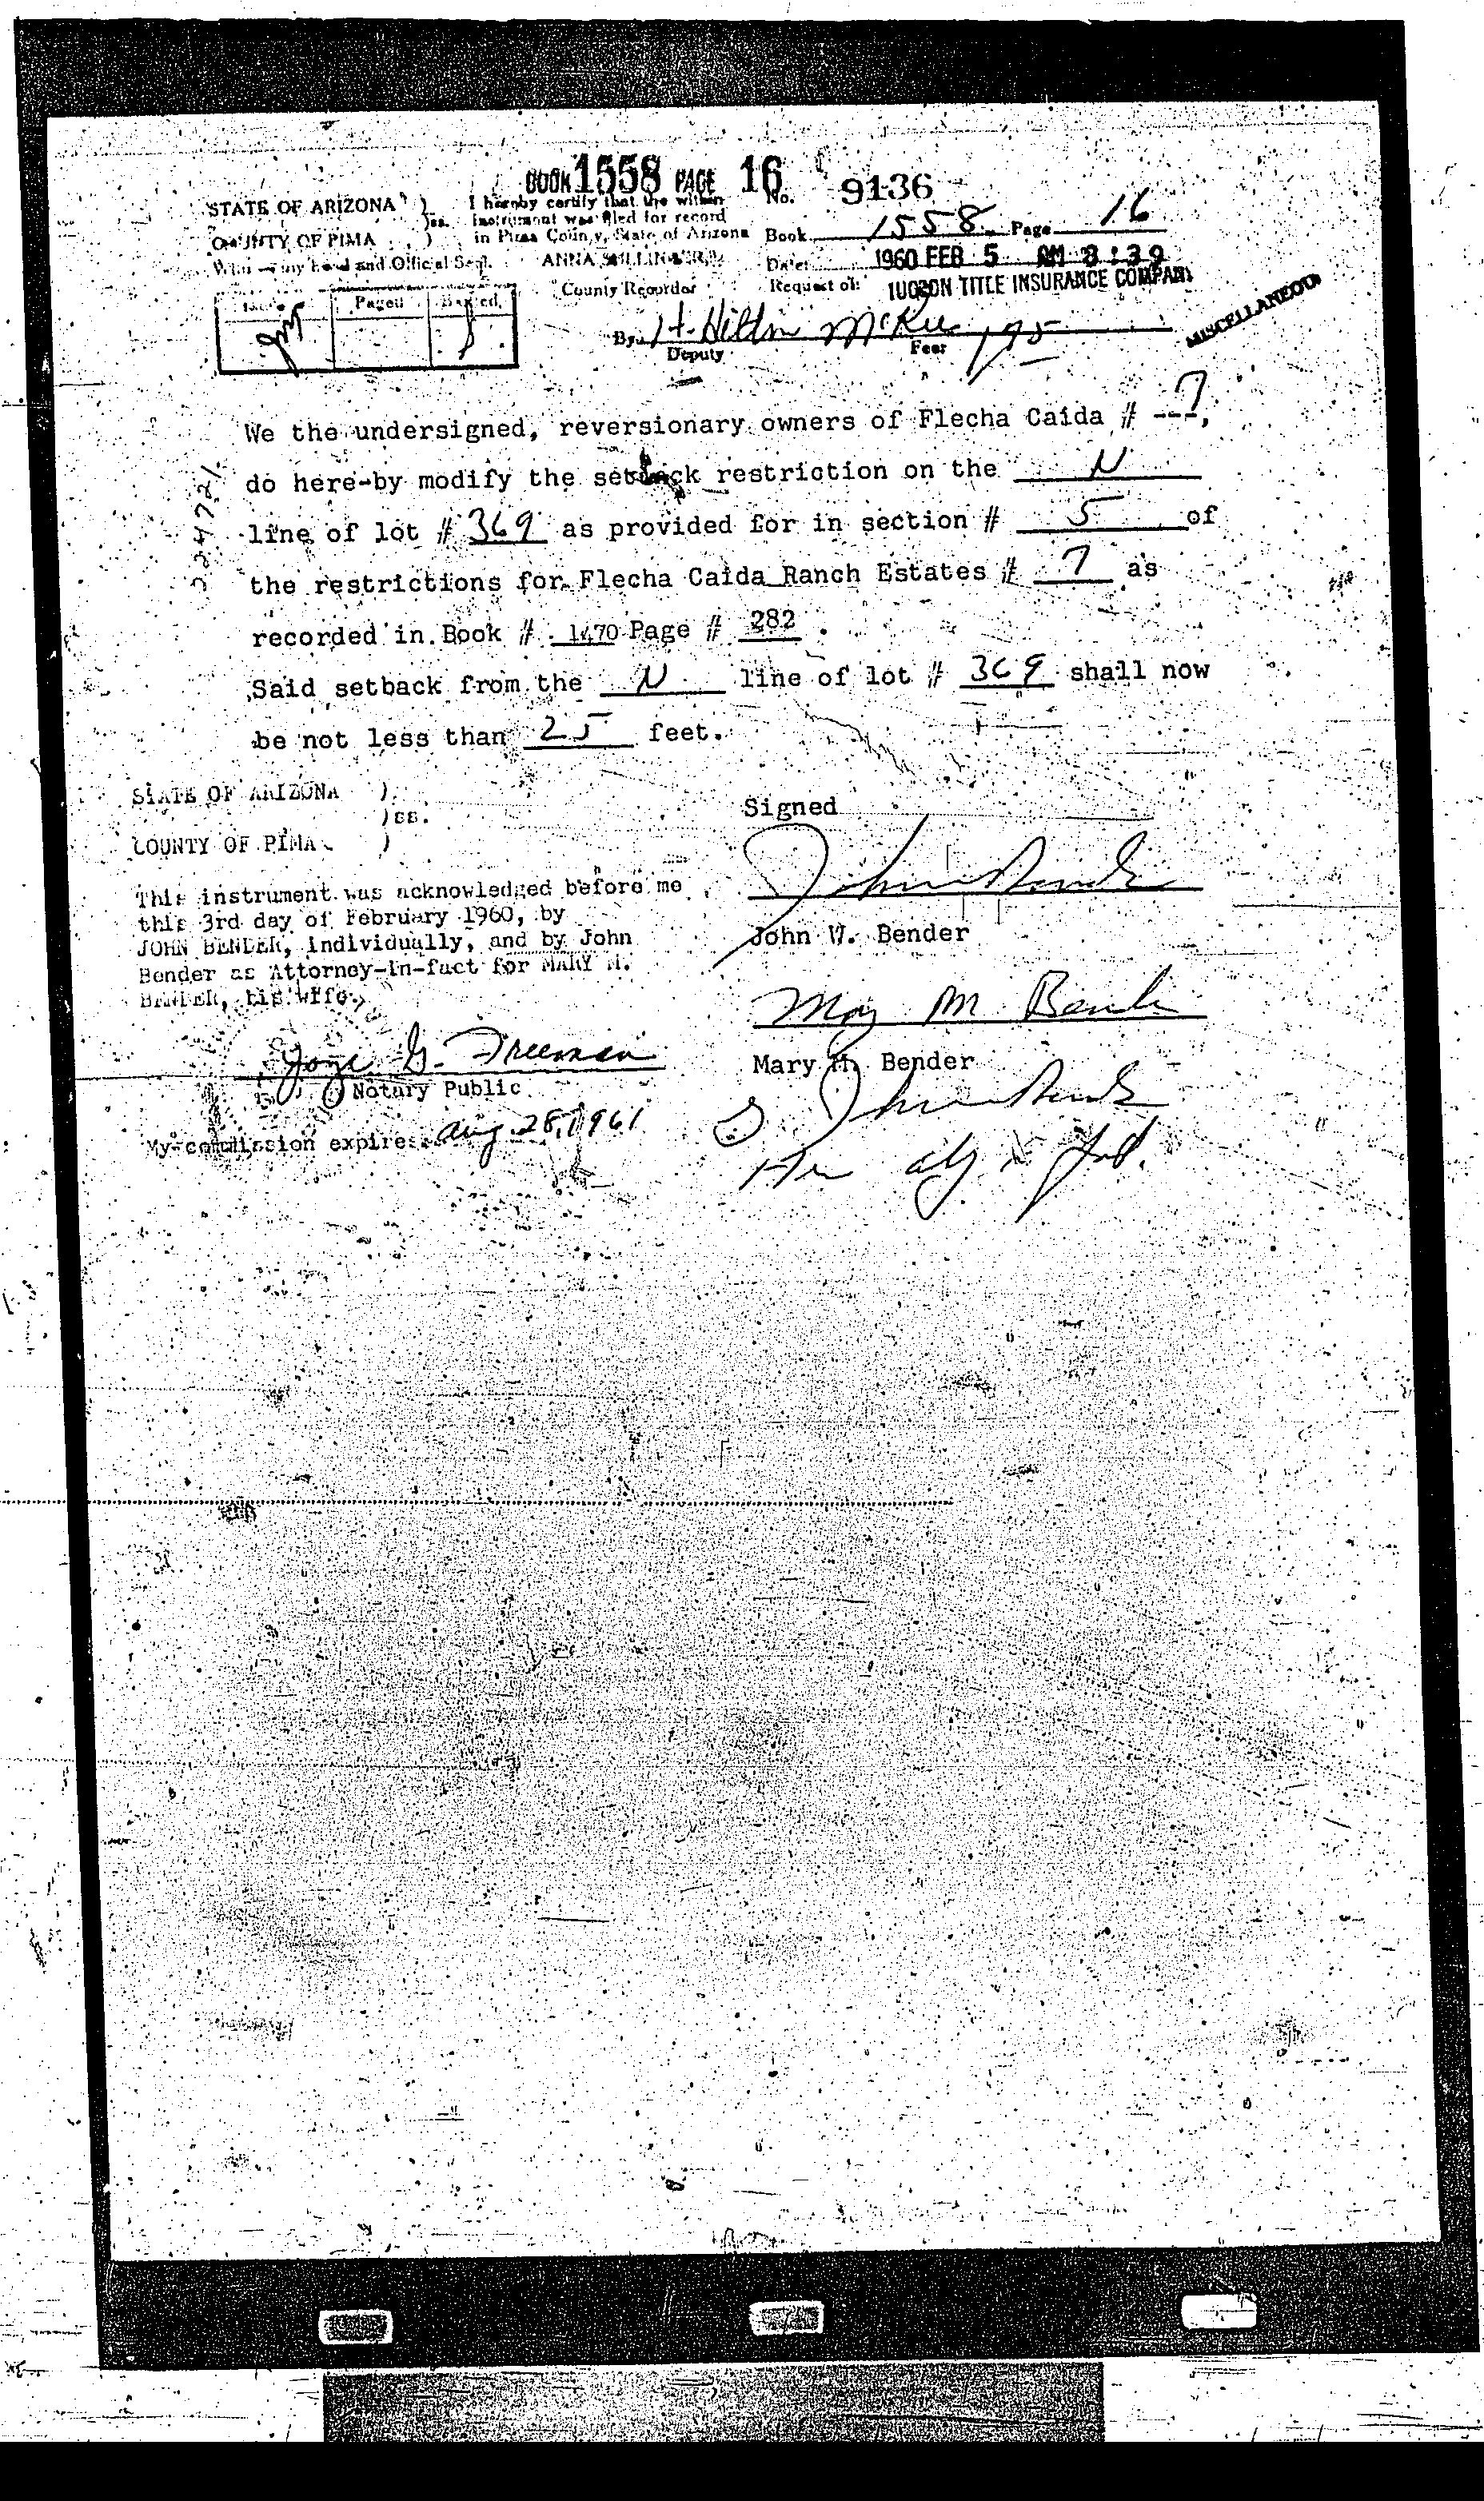 BOOK 1558 PAGE 16
STATE OF ARIZONA ) ss. I hereby certify that the within No. 9136
instrument was filed for record
COUNTY OF PIMA ) in Pima County, State of Arizona Book 1558 Page 16
Witness my hand and Official Seal. ANNA SULLINGER, Date: 1960 FEB 5 AM 8:39
County Recorder Request of: TUCSON TITLE INSURANCE COMPANY
Paged
MISCELLANEOUS
By H. Hilton McKee 1.75
Deputy Fee:
We the undersigned, reversionary owners of Flecha Caida # ---7,
do here-by modify the setback restriction on the N
line of lot # 369 as provided for in section # 5 of
the restrictions for Flecha Caida Ranch Estates # 7 as
recorded in Book # 1470 Page # 282 .
Said setback from the N line of lot # 369 shall now
be not less than 25 feet.
STATE OF ARIZONA )
)ss.
COUNTY OF PIMA )
This instrument was acknowledged before me
this 3rd day of February 1960, by
JOHN BENDER, individually, and by John
Bender as Attorney-in-fact for MARY M.
BENDER, his wife.
G. Freeman
Notary Public
My commission expires: Aug. 28, 1961
Signed
John Bender
John W. Bender
Mary M Bender
Mary M. Bender
John Bender
Her atty in fact.